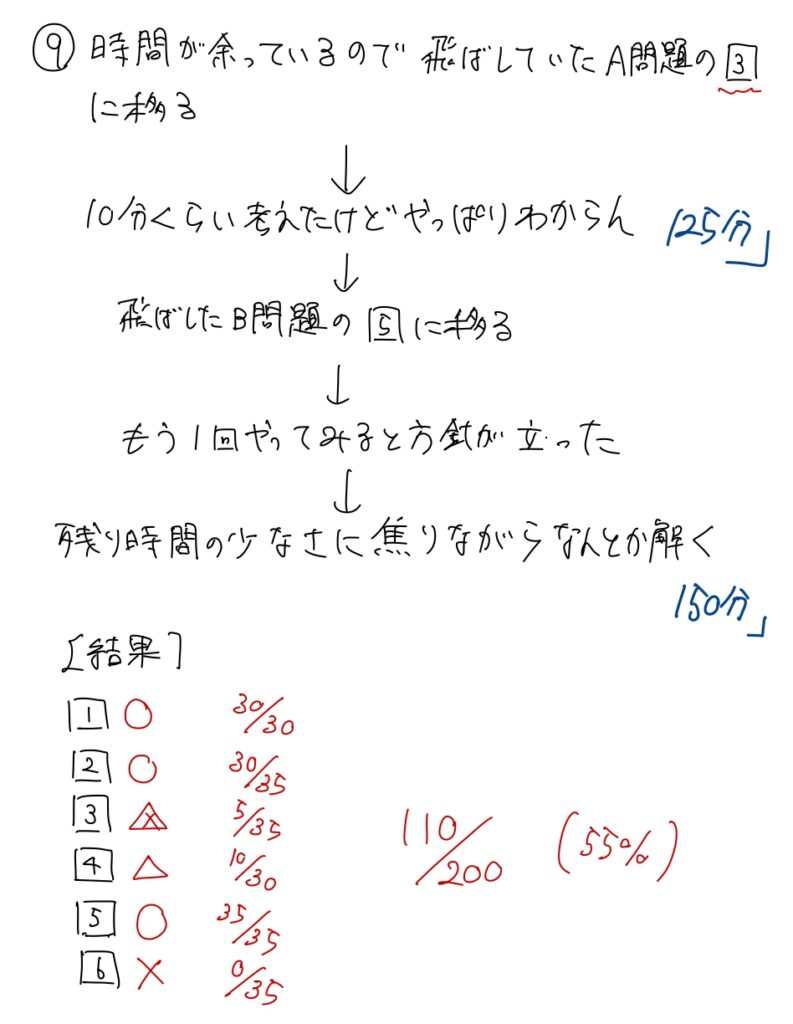 ⑨ 時間が余っているので 飛ばしていたA問題の3
に移る
↓
10分くらい考えたけどやっぱりわからん 125分」
↓
飛ばしたB問題の5に移る
↓
もう1回やってみると方針が立った
↓
残り時間の少なさに焦りながらなんとか解く
150分」
[結果]
1 ○ 30/30
2 ○ 30/35
3 △× 5/35
4 △ 10/30
5 ○ 35/35
6 × 0/35
110/200 (55%)